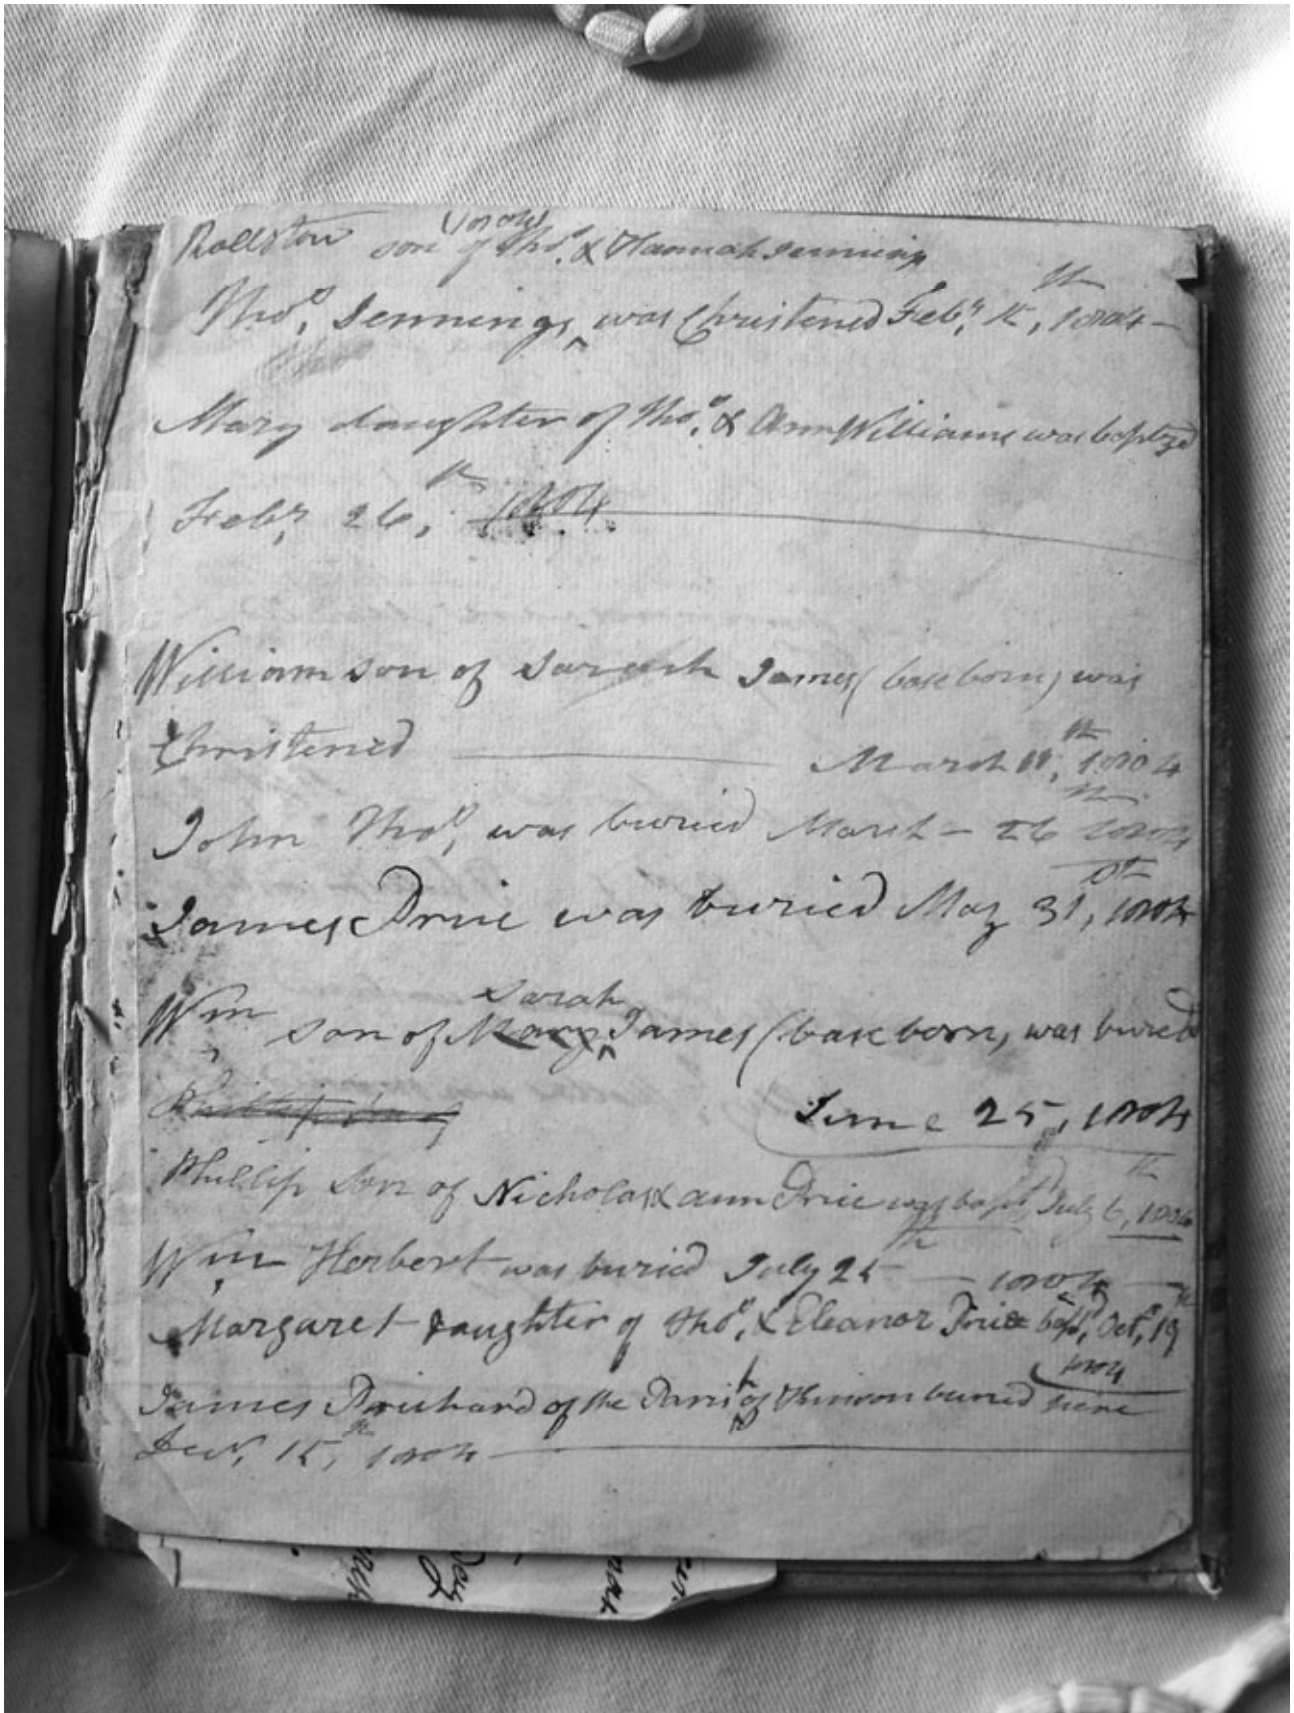 Rollston son of Thos. & Hannah Jennings
Thos. Jennings ‸ was Christened Feby. 12th, 1804 –
Mary daughter of Thos. & Ann Williams was baptzed
Feby. 26th, 1804
William son of Sarah James (base born) was
Christened March 11th, 1804
John Thos, was buried March – 26th 1804
James Price was buried May 31st, 1804
Sarah
Wm son of Mary ‸ James (base born, was buried
June 25, 1804
Phillip Son of Nicholas & ann Price was bapd. July 6th, 1804
Wm Herbert was buried July 25th – 1804 –
Margaret daughter of Thos. & Eleanor Price bapd, Oct, 19th
1804
James Prichard of the Parish of buried here
15th, 1804